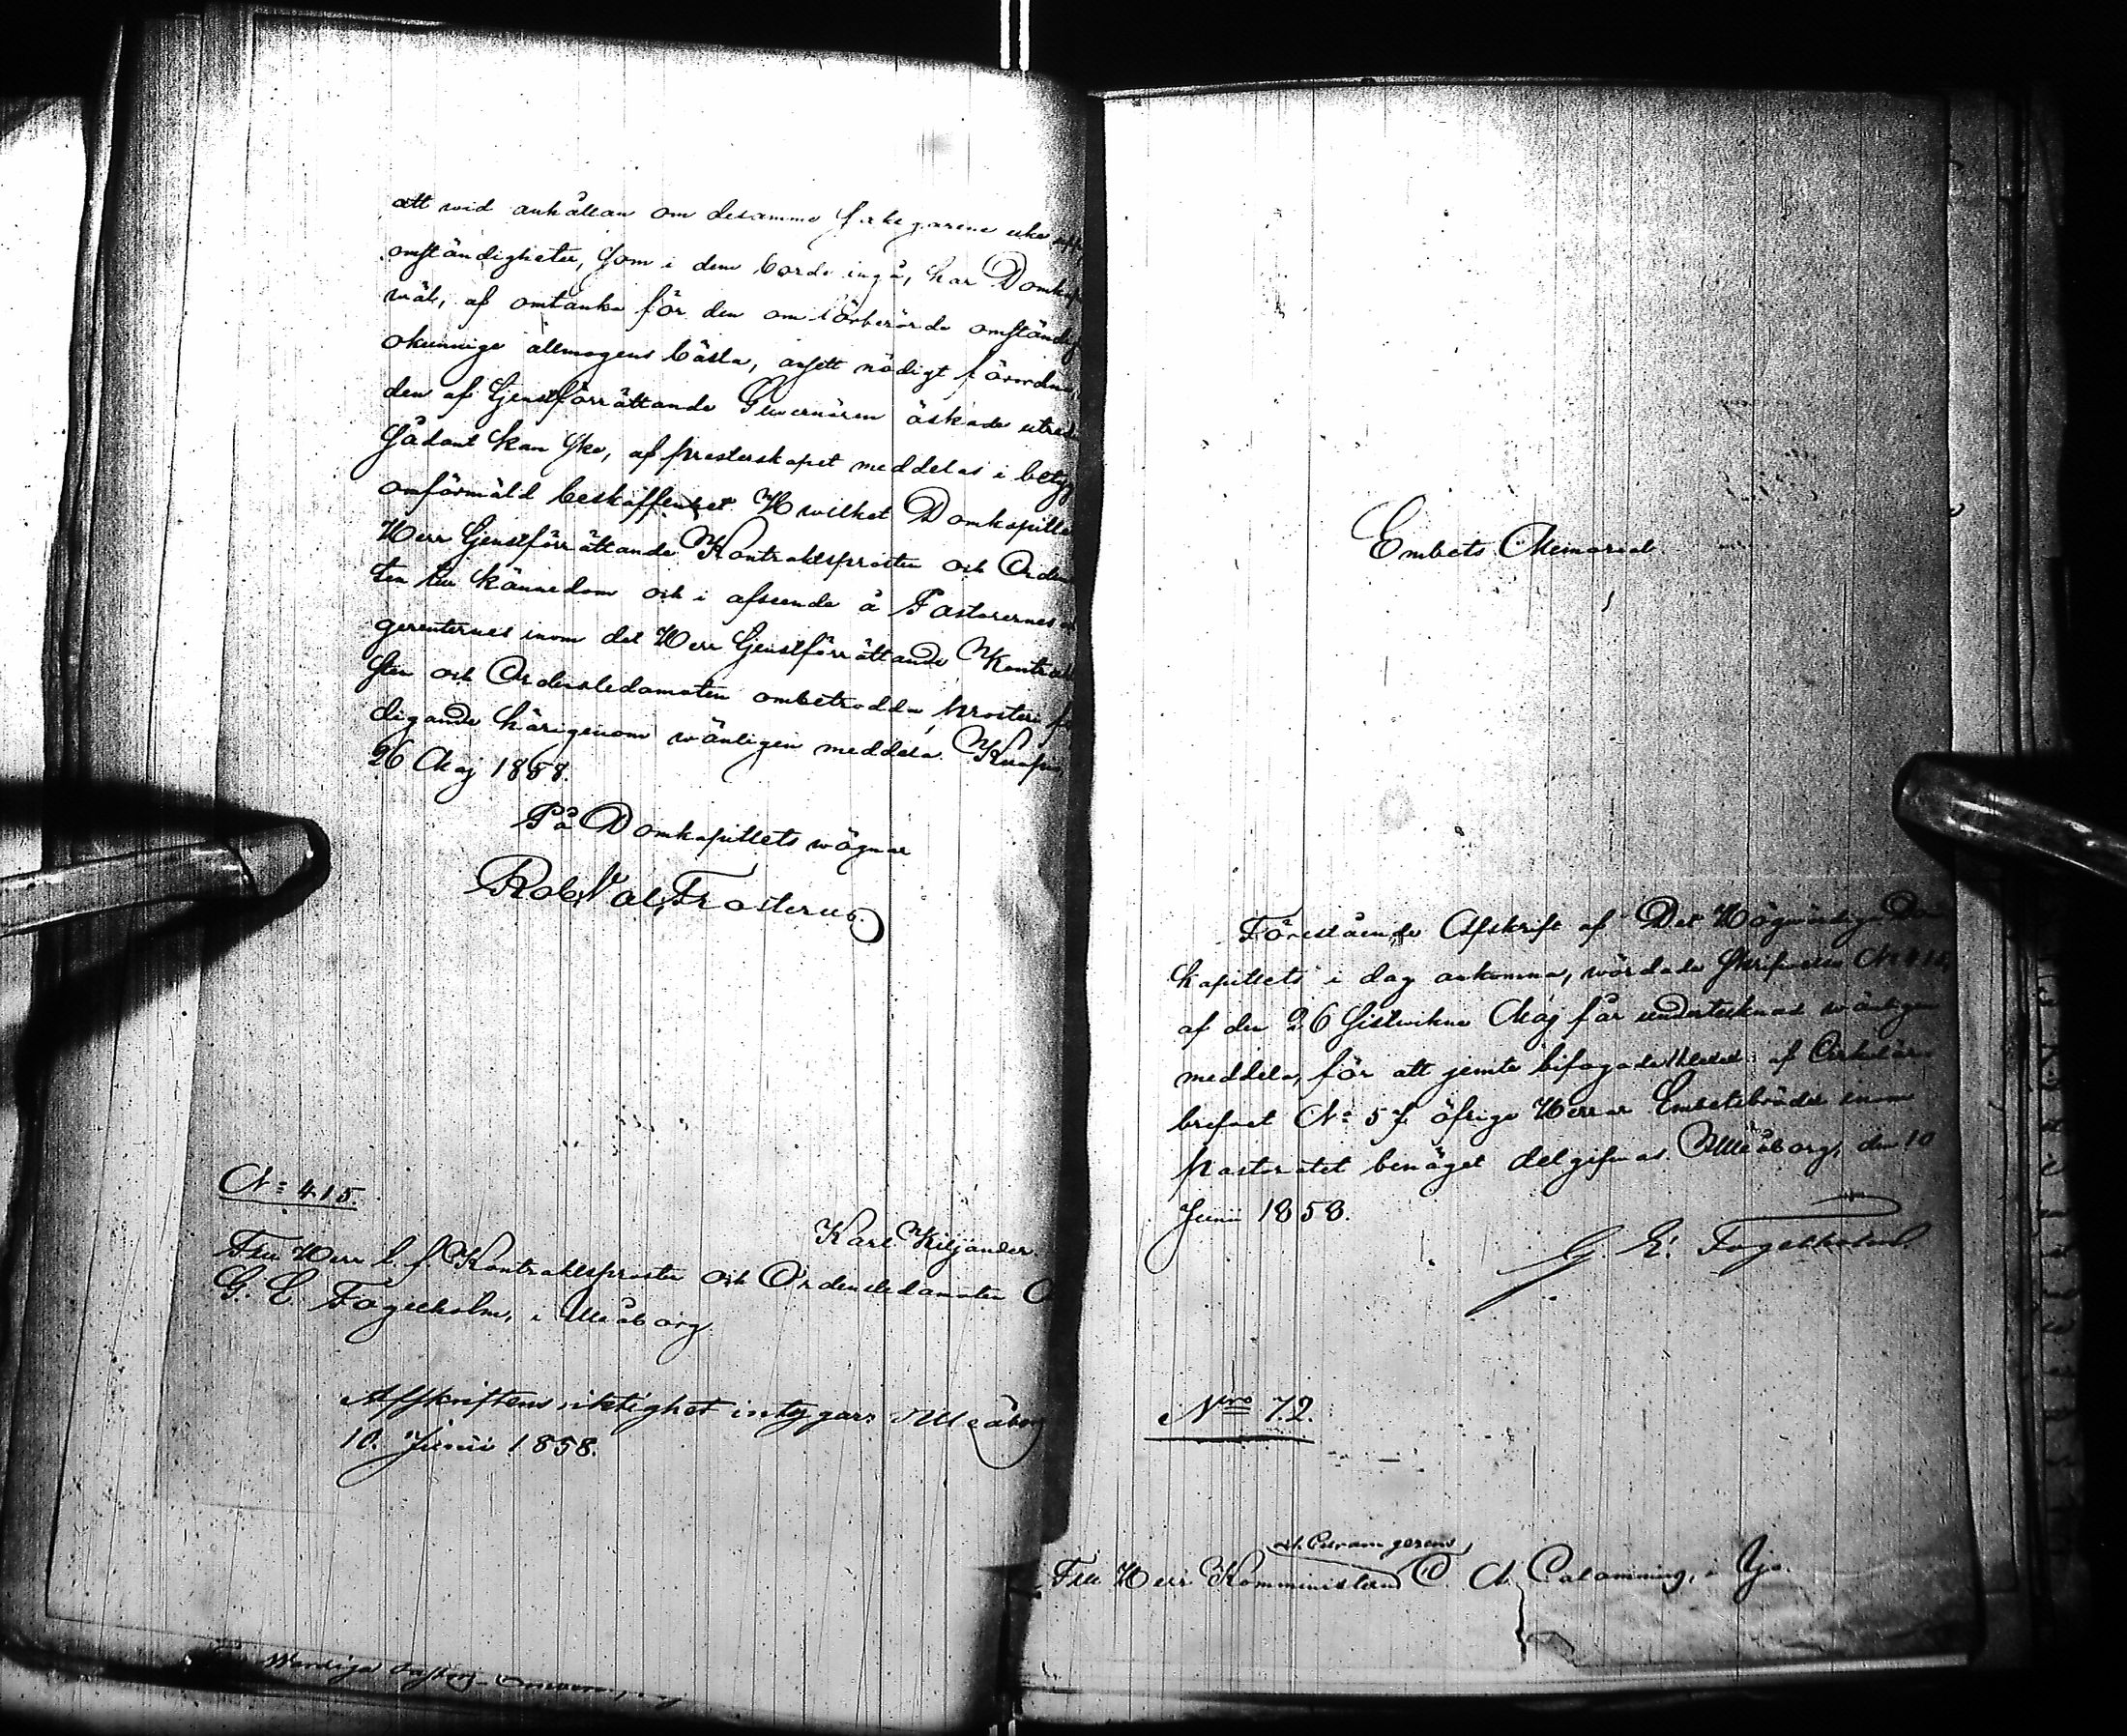 att wid anhållan om desamma sakegarene icke
omständigheter, som i dem borde ingå, har Domkap
wäl, af omtanke för den om sörberörde omständig
okunnige allmogens bästa, ansett nödigt förordna,
den af tjenstförrättande Guvernören äskade utred
sådant kan ske, af presterskapet meddelas i betyg
omförmäld beskaffenhet Hwilket Domkapitle
Herr tjenstförrättande Kontraktsprosten och Orden
ten till kännedom och i afseende å Pastorernes
gerenternes inom det Herr tjenstförrättande Kontrak
sten och Ordensledamoten ombetrodda prosteri
digande härigenom wänligen meddela. Kuopio
26 Maj 1858.
På Domkapitlets wägnar
Rob. Val. Frosterus.
N:o 415.
Karl Kiljander.
Till Herr t. f. Kontraktsprosten och Ordensledamoten
G. E. Fogelholm, i Uleåborg.
Afskriftens riktighet intygar: Uleåborg
10. Junii 1858.
Embets Memorial
Förestående Afskrift af Det Högwördiga Dom
kapitlets i dag ankomna, wördade skrifwelse N:o 415,
af den 26 sistwikne Maj får undertecknad wänligen
meddela, för att jemte bifogade af Cirkulär-
brefwet N:o 57 öfrige Herrar Embetsbröder inom
pastoratet benäget delgifwas. Uleåborg, den 10
Junii 1858.
G. E. Fogelholm.
Nro 72.
v. Curam gerens
Till Herr Kommistern C. A. Calamnius, i Ijo.